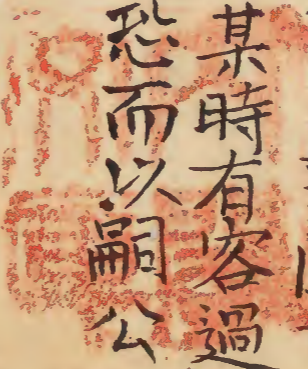 某時有客過
恐而以嗣公